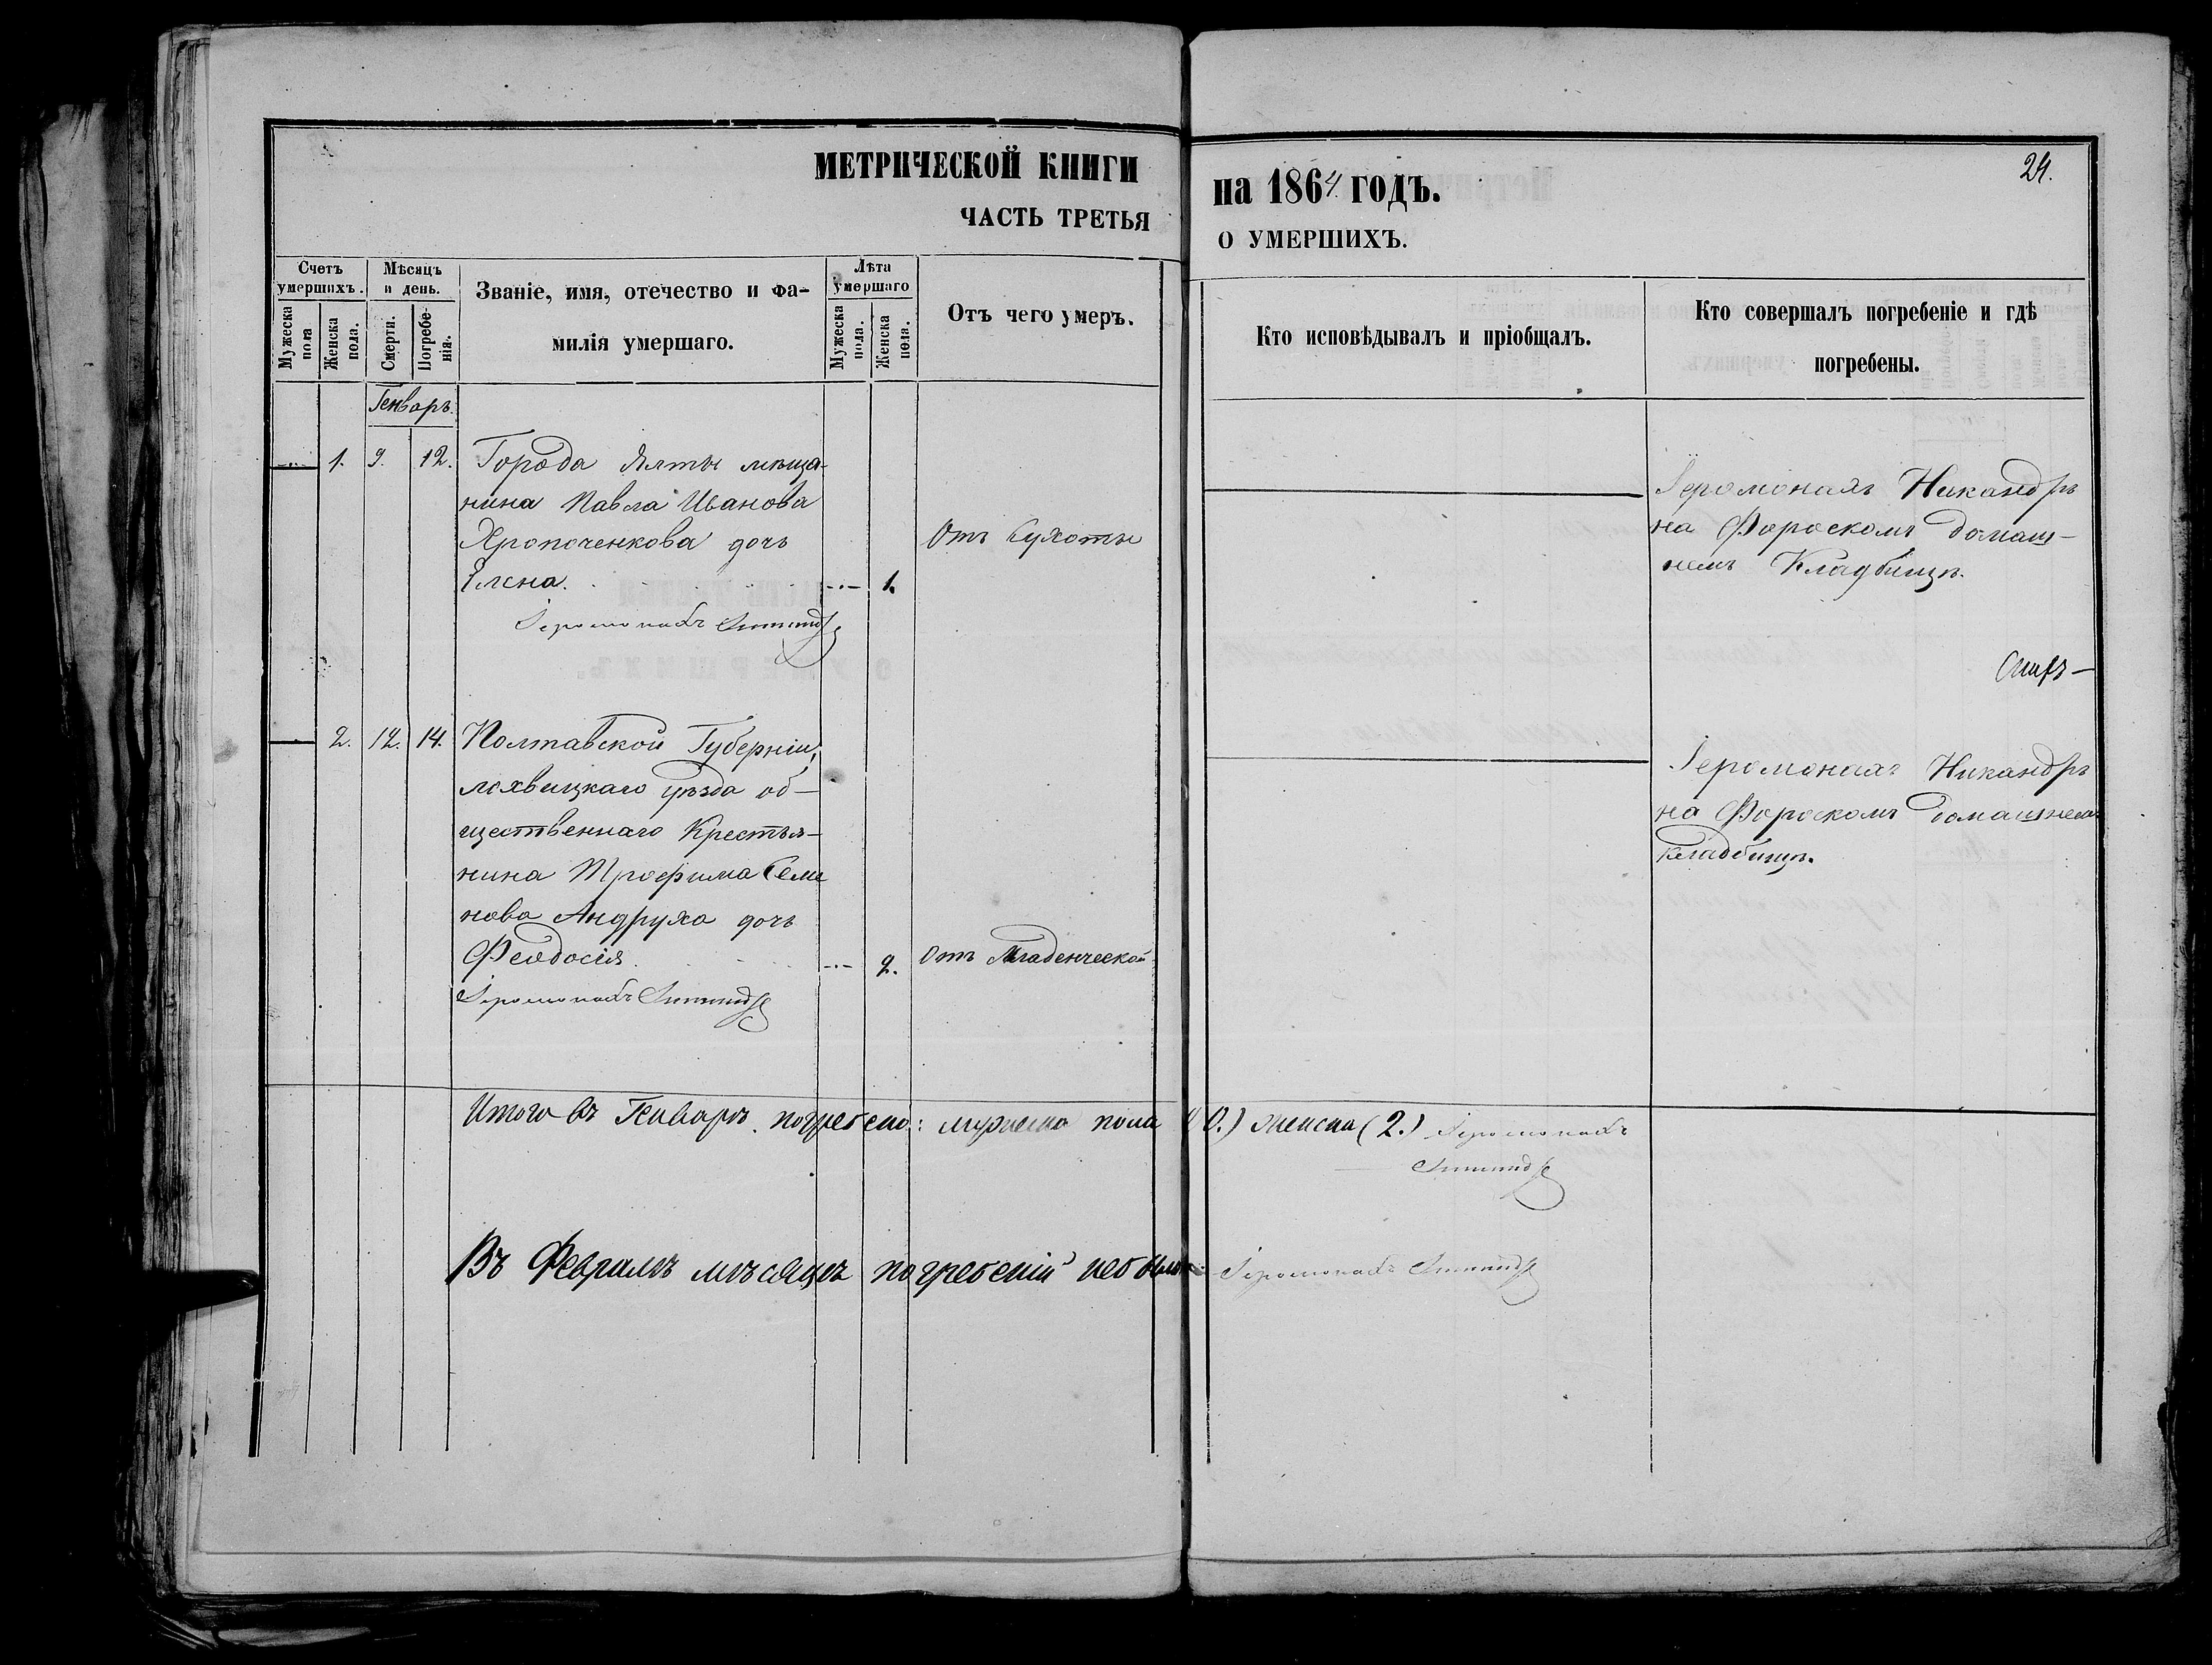 МЕТРИЧЕСКОЙ КНИГИ
на 1864 годъ.
24.
ЧАСТЬ ТРЕТЬЯ
О УМЕРШИХЪ.
Счетъ умершихъ.
Мужеска пола
Женска пола.
Мѣсяцъ и день.
Смерти.
Погребенія.
Званіе, имя, отечество и фа-
милія умершаго.
Лѣта умершаго
Мужеска пола.
Женска пола.
Отъ чего умеръ.
Кто исповѣдывалъ и пріобщалъ.
Кто совершалъ погребеніе и гдѣ
погребены.
Генварь.
1. 9. 12. Города Ялты мѣща-
нина Павла Иванова
Хропоченкова дочь
Елена. 1.
Отъ Сухоты
Іеромонахъ Никандръ
на Фороскомъ домаш-
немъ Кладбищѣ.
Іеромонахъ
2. 12. 14. Полтавской Губерніи,
лохвицкаго уѣзда об-
щественнаго Крестья-
нина Трофима Семе
нова Андруха дочь
Феодосія. 2.
Отъ Младенческой
Іеромонахъ Никандръ
на Фороскомъ домашнемъ
кладбищѣ.
Іеромонахъ
Итого въ Генварѣ погребено: мужеска пола (0.) женска (2.) Іеромонахъ
Въ Февралѣ мѣсяцѣ погребеній небыло Іеромонахъ